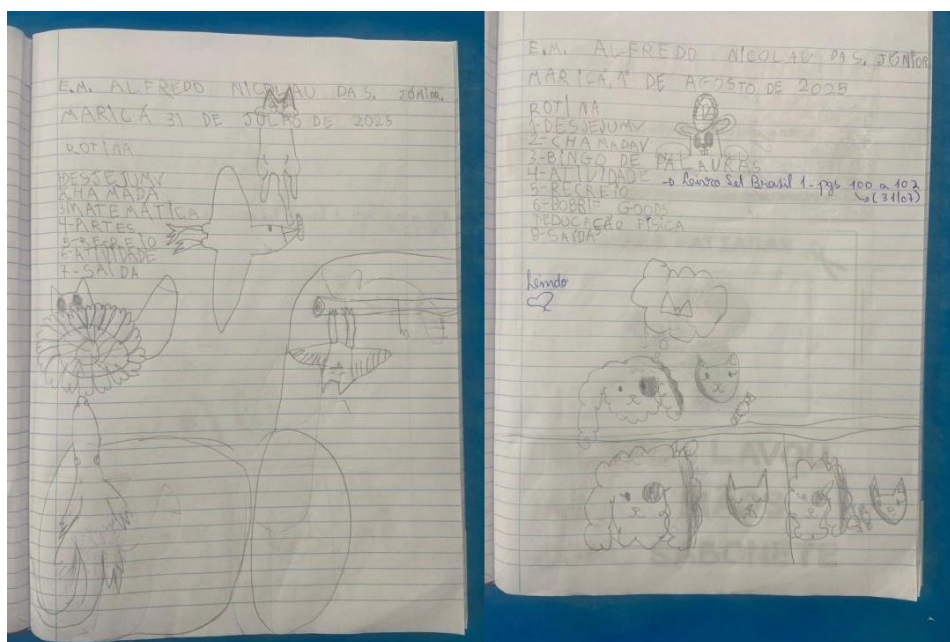 E.M. ALFREDO NICOLAU DA S. JÚNIOR.
MARICÁ 31 DE JULHO DE 2025
ROTINA
DESJEJUM✓
CHAMADA
3 MATEMÁTICA
4-ARTES
5-RECREIO
6-ATIVIDADE
7-SAÍDA
E.M. ALFREDO NICOLAU DA S. JÚNIOR
MARICÁ, 1º DE AGOSTO DE 2025
ROTINA
1-DESJEJUM✓
2-CHAMADA✓
3-BINGO DE PALAVRAS
4-ATIVIDADE → Livro Sel Brasil 1 - pgs 100 a 102
↳ (31/07)
5-RECREIO
6-BOBBIE GOODS
7-EDUCAÇÃO FÍSICA
8-SAÍDA
Lindo
SABONETE